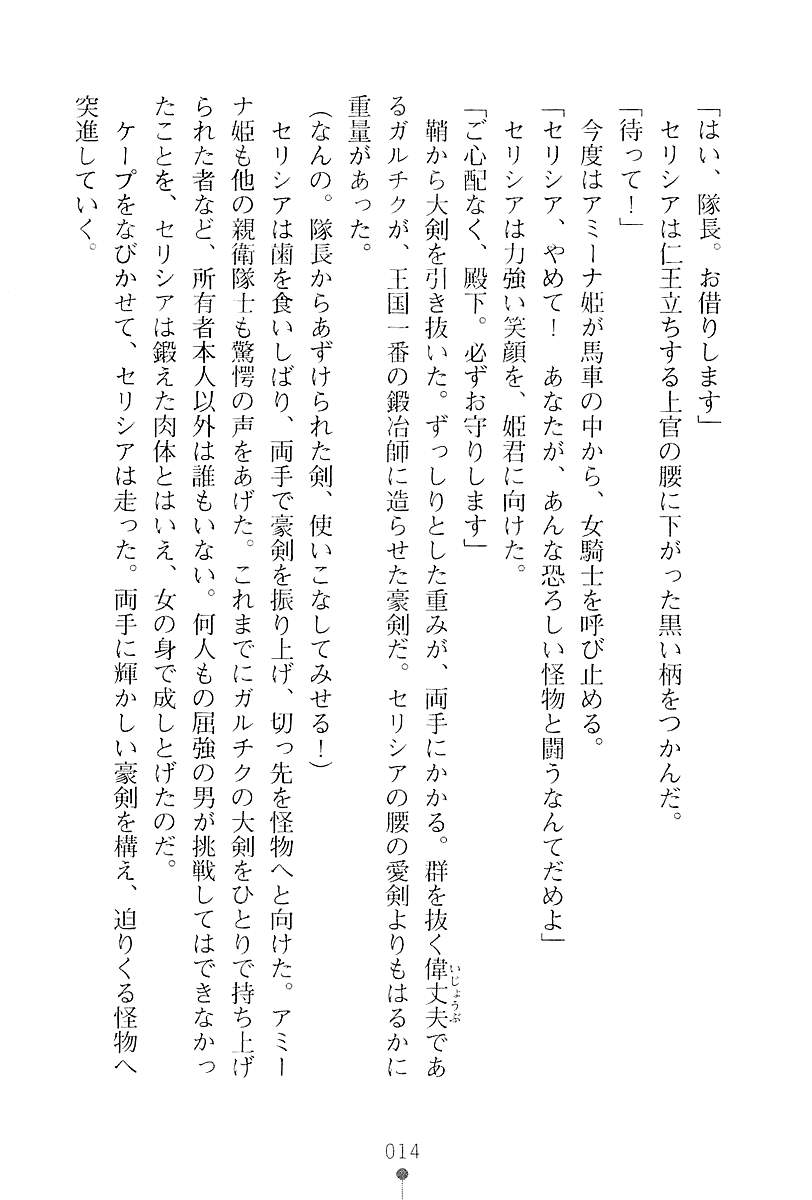 「はい、隊長。お借りします」
　セリシアは仁王立ちする上官の腰に下がった黒い柄をつかんだ。
「待って！」
　今度はアミーナ姫が馬車の中から、女騎士を呼び止める。
「セリシア、やめて！　あなたが、あんな恐ろしい怪物と闘うなんてだめよ」
　セリシアは力強い笑顔を、姫君に向けた。
「ご心配なく、殿下。必ずお守りします」
　鞘から大剣を引き抜いた。ずっしりとした重みが、両手にかかる。群を抜く偉丈夫であ
いじょうぶ
るガルチクが、王国一番の鍛冶師に造らせた豪剣だ。セリシアの腰の愛剣よりもはるかに
重量があった。
（なんの。隊長からあずけられた剣、使いこなしてみせる！）
　セリシアは歯を食いしばり、両手で豪剣を振り上げ、切っ先を怪物へと向けた。アミー
ナ姫も他の親衛隊士も驚愕の声をあげた。これまでにガルチクの大剣をひとりで持ち上げ
られた者など、所有者本人以外は誰もいない。何人もの屈強の男が挑戦してはできなかっ
たことを、セリシアは鍛えた肉体とはいえ、女の身で成しとげたのだ。
　ケープをなびかせて、セリシアは走った。両手に輝かしい豪剣を構え、迫りくる怪物へ
突進していく。
014